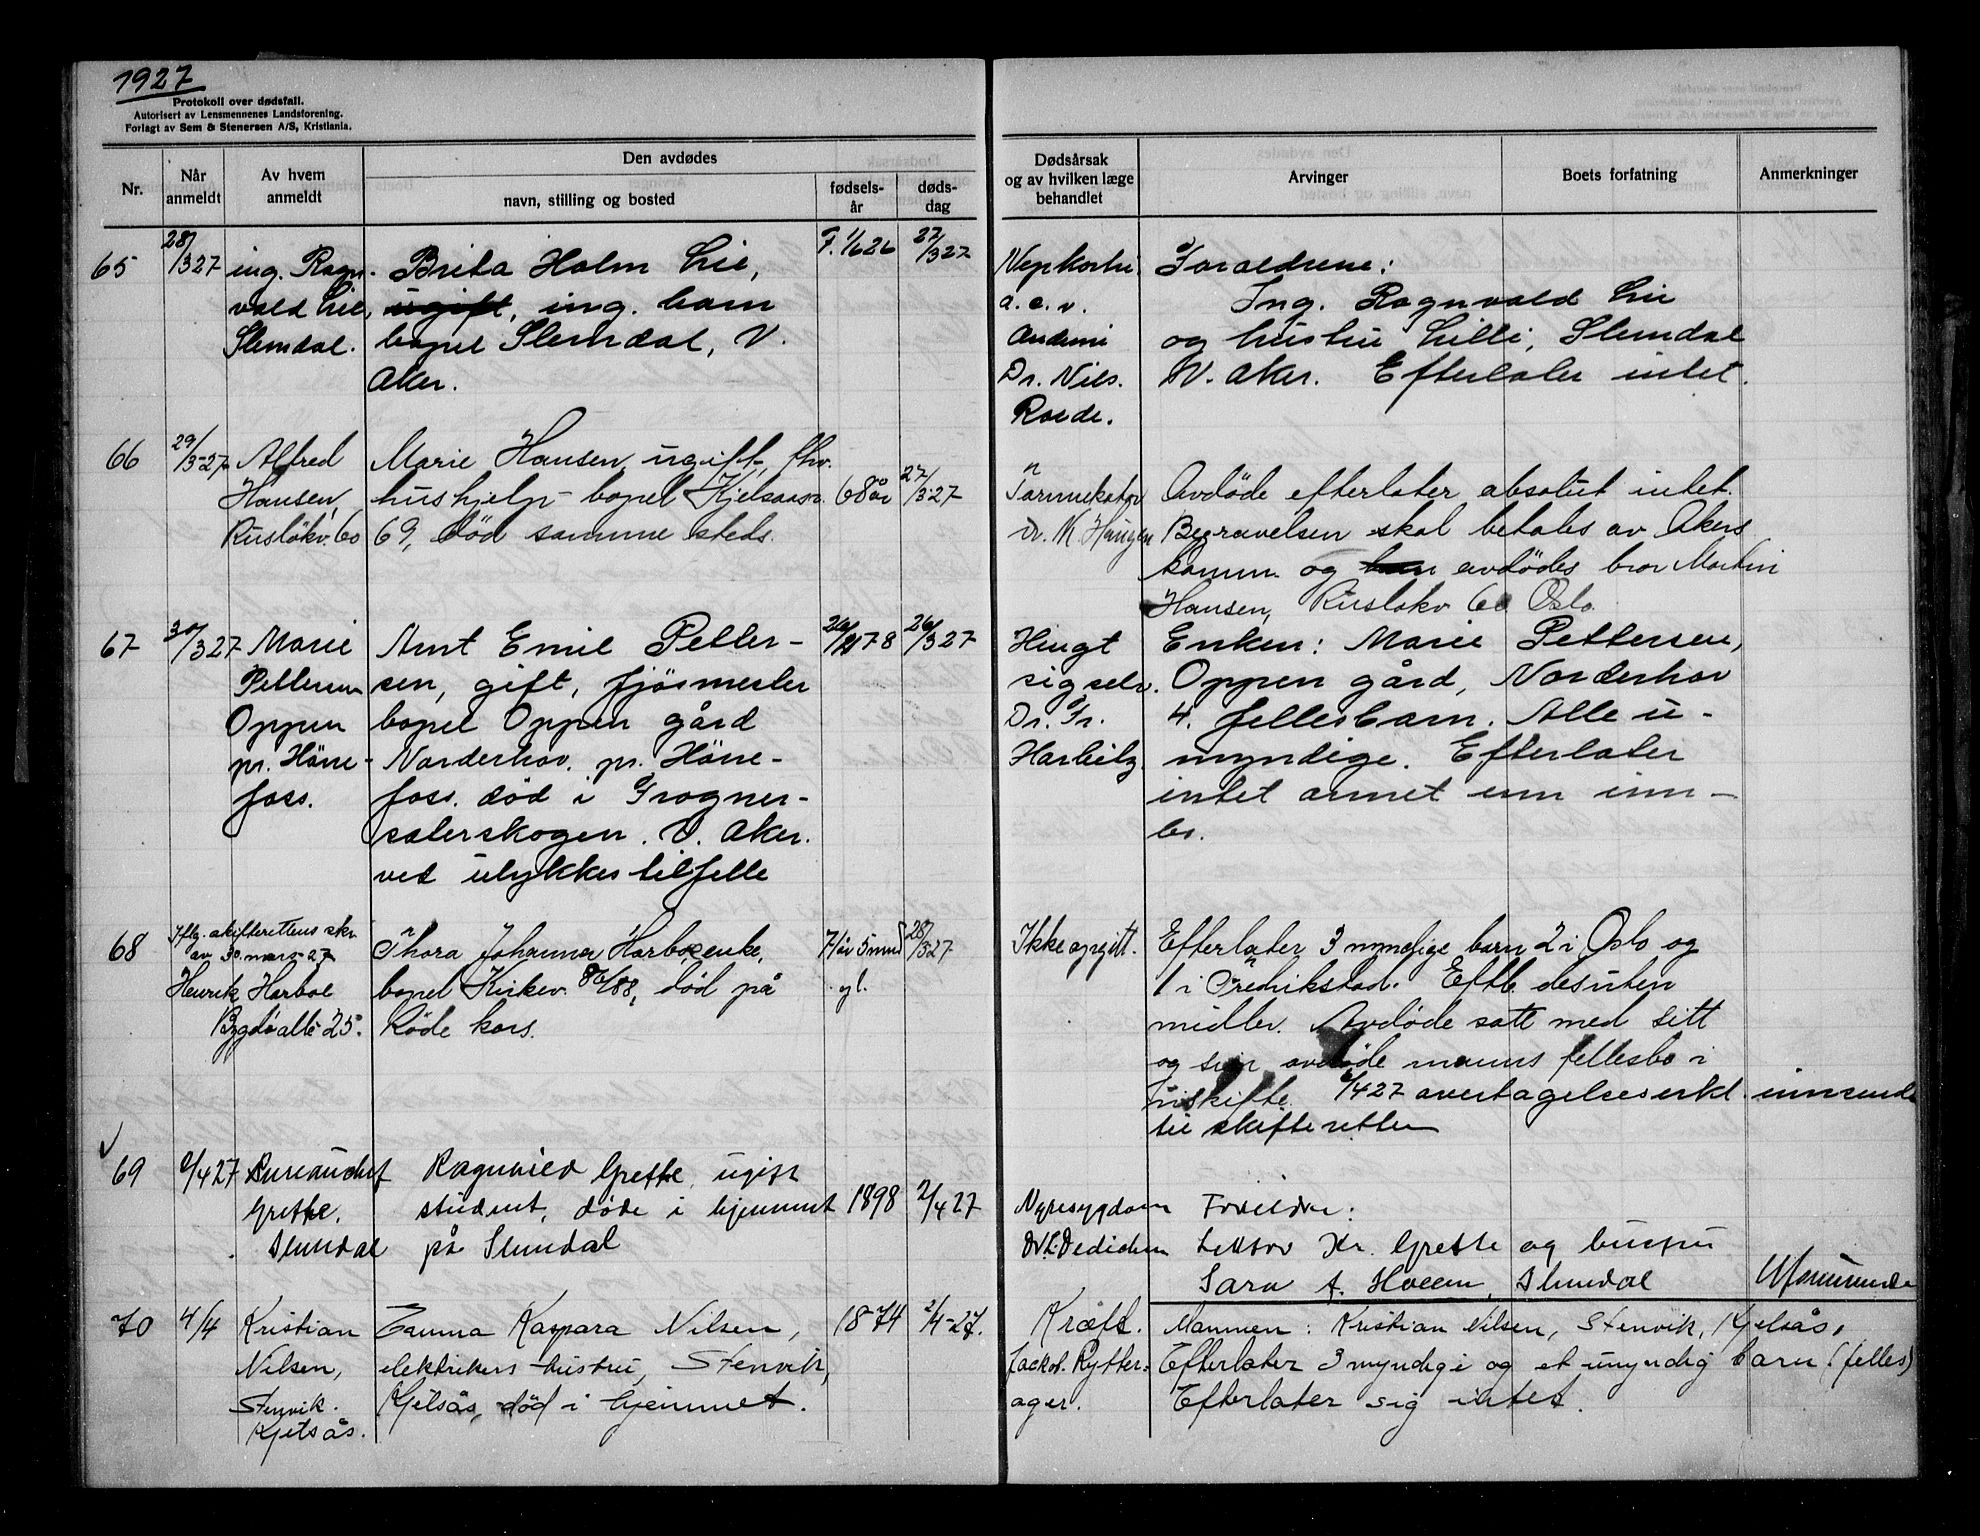 1927
Protokoll over dødsfall.
Autorisert av Lensmennenes Landsforening.
Forlagt av Sem & Stenersen A/S, Kristiania.
Nr.
Når anmeldt
Av hvem anmeldt
Den avdødes
navn, stilling og bosted
fødsels-år
døds-dag
Dødsårsak og av hvilken læge behandlet
Arvinger
Boets forfatning
Anmerkninger
65
28/3 27
ing. Ragn-
vald Lie,
Slemdal.
Brita Holm Lie,
ugift, ing. barn
bopel Slemdal, V.
Aker.
F. 1/6 26
27/3 27
a. e. v.
Dr. Nils
Roede.
Foreldrene:
Ing. Ragnvald Lie
og hustru Lilli, Slemdal
V. Aker. Efterlater intet.
66
29/3-27
Alfred
Hansen,
Rusløkv. 60
Marie Hansen, ugift, fhv.
hushjelp - bopel Kjelsaasv.
69, død samme steds.
68 år
27/3 27
Dr. K. Haugen
Avdøde efterlater absolut intet.
Begravelsen skal betales av Akers
komm. og avdødes bror Martin
Hansen, Rusløkv 60 Oslo.
67
30/3 27
Marie
Pettersen
Oppen
pr. Høne-
foss.
Arnt Emil Petter-
sen, gift, fjøsmester
bopel Oppen gård
Norderhov. pr. Høne-
foss. død i Frogner-
seterskogen. V. Aker.
ved ulykkestilfelle
26/3 27
Hengt
sig selv.
Dr. Fr.
Harbitz.
Enken: Marie Pettersen,
Oppen gård, Norderhov
4. fellesbarn. Alle u-
myndige. Efterlater
intet annet enn inn-
bo.
68
Iflg. skifterettens skr.
av 30. mars-27
Henrik Harboe
Bygdø allé 25.
Thora Johanna Harboe, enke,
bopel Kirkev. 86/88, død på
Røde kors.
71 år 5 mnd
gl.
28/3 27
Ikke opgitt.
Efterlater 3 myndige barn 2 i Oslo og
1 i Fredrikstad. Eftl. desuten
midler. Avdøde satt med sitt
og sin avdøde manns fellesbo i
uskifte. 6/4 27 overtagelseserkl. innsendt
til skifteretten
69
2/4 27
Bureauchef
Grette.
Slemdal
Ragnhild Grette, ugift
student, døde i hjemmet
på Slemdal
1898
2/4 27
Nyresygdom
Dr. L. Dedichen
Foreldre:
Lektor Kr. Grette og hustru
Sara f. Hveem, Slemdal
70
4/4
Kristian
Nilsen,
Stenvik.
Kjelsås.
Emma Kaspara Nilsen,
elektrikers hustru, Stenvik,
Kjelsås, død i hjemmet.
1874
2/4-27.
Kræft.
Jackob Rytter-
ager.
Mannen: Kristian Nilsen, Stenvik, Kjelsås,
Efterlater 3 myndige og et umyndig barn (felles)
Efterlater sig intet.